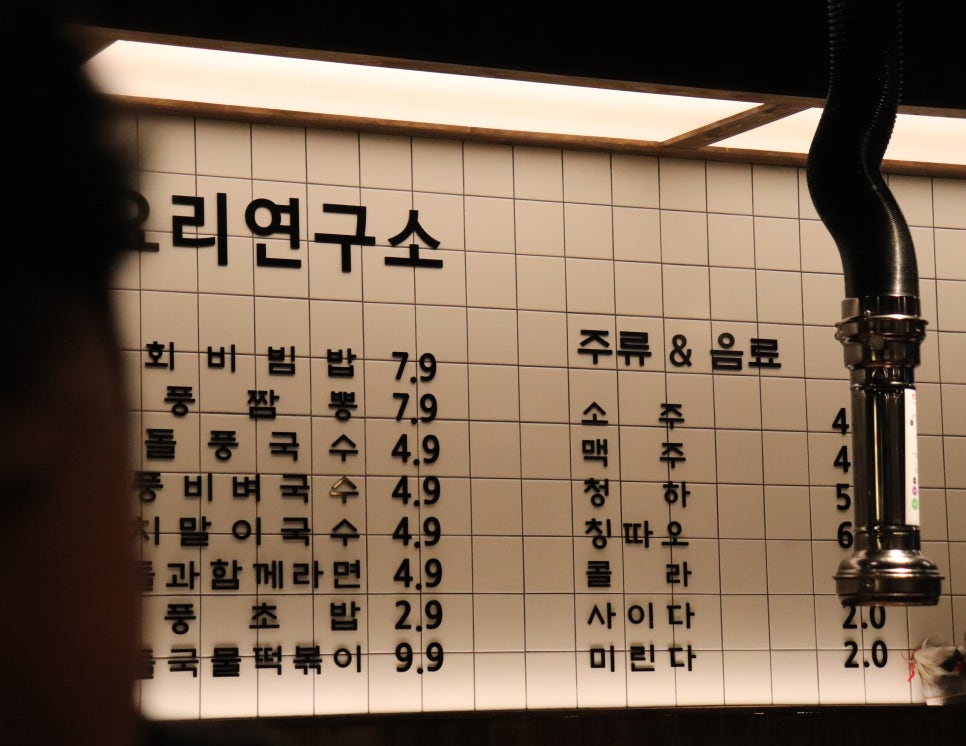 요리연구소
회비빔밥 7.9
풍짬뽕 7.9
돌풍국수 4.9
풍비벼국수 4.9
말이국수 4.9
과함께라면 4.9
풍초밥 2.9
국물떡볶이 9.9
주류 & 음료
소주 4
맥주 4
청하 5
칭따오 6
콜라
사이다 2.0
미린다 2.0